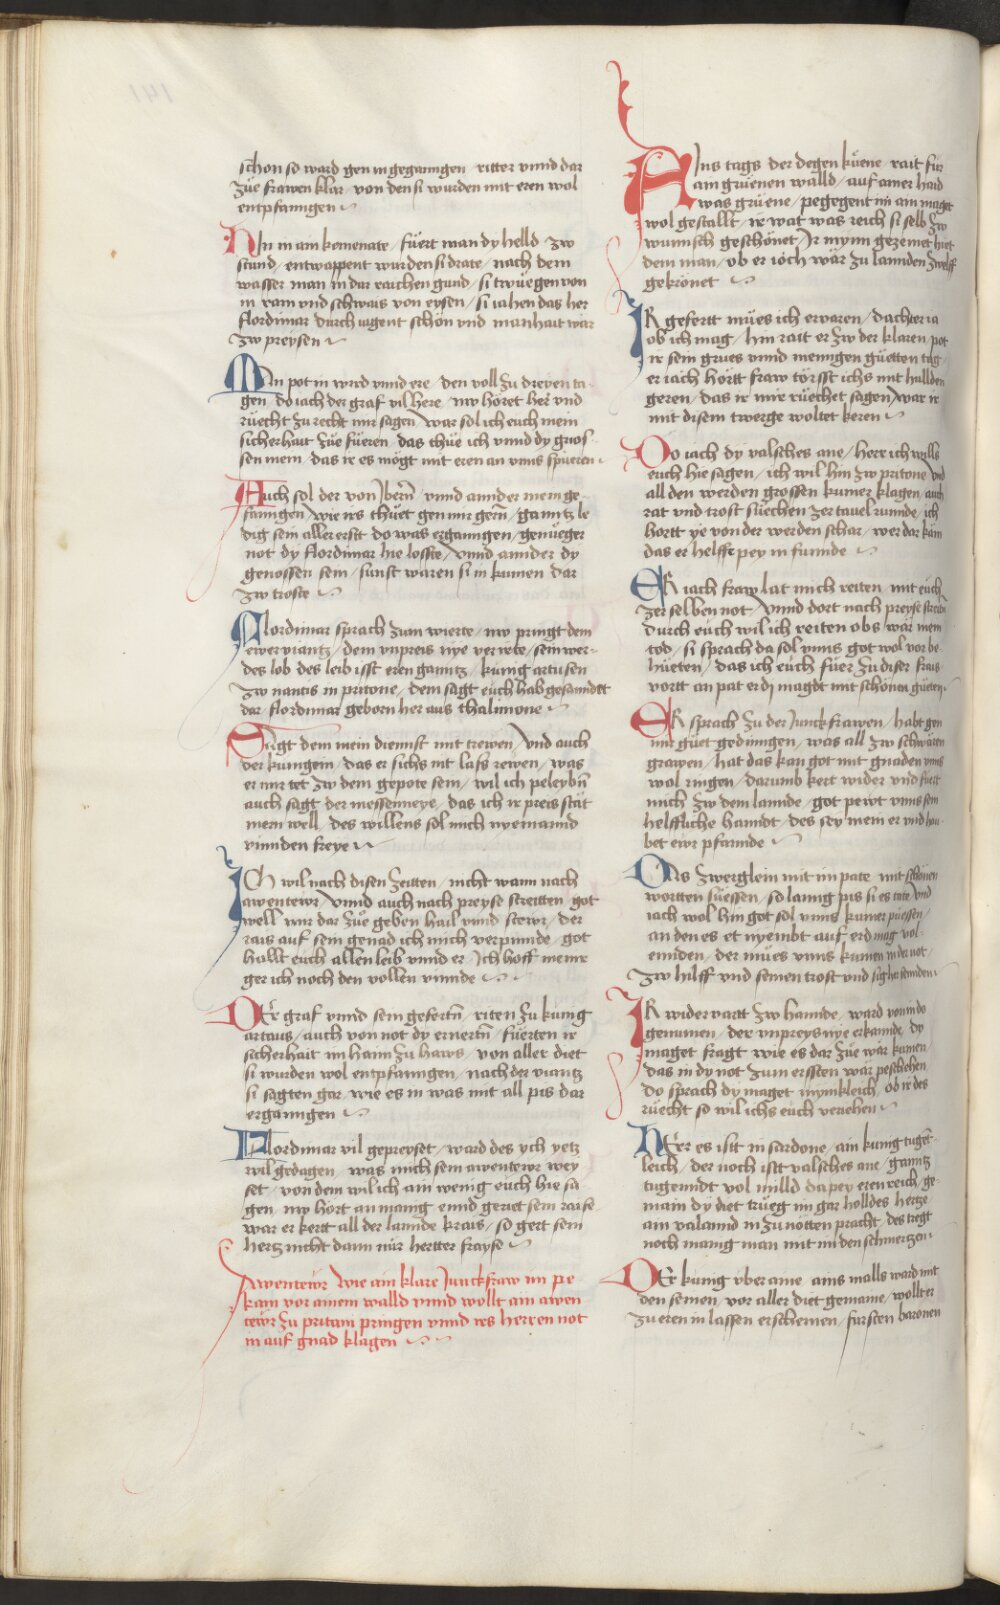 schon so ward gen in gegangen / ritter vnnd dar
zůe frawen klar / von den si wurden mit eren wol
entpfanngen
HIn in ain kemenate / füert man dy helld zw
stund / entwappent wurden si drate / nach dem
wasser man in dar raichen gund / si twůegen von
in ram vnd schwais von eysen / si iahen das her
flordimar durch iugent schön vnd manhait wär
zw preysen
MAn pot in wird vnnd ere / den voll zu dreyen ta-
gen / do iach der graf vil here / nw höret her vnd
růecht zu recht mir sagen / war sol ich euch mein
sicherhait zůe füeren / das thůe ich vnnd dy gnos-
sen mein / das ir es mögt mit eren an vnns spüeren
Auch sol der von Ibern / vnnd annder mein ge-
fanngen / wie irs thüet gen mir gern / ganntz le
dig sein aller erst do was ergangen / genůeger
not dy flordimar hie losste / vnnd annder dy
genossen sein / sunst waren si in kumen dar
zw troste
FLordimar sprach zum wierte / nw pringt dem
ewer viantz / dem vnpreis nye verirte / sein wer-
des lob des leib isst eren ganntz / kunig artusen
zw nantis in pritone / dem sagt euch hab gesanndtt
dar / flordimar geborn her aus thalimone
SAgt dem mein diennst mit trewen / vnd auch
der kunigein / das er sichs nit lass rewen / was
er mir tet zw dem gepote sein / wil ich peleybn
auch sagt der messenneye / das ich ir preis stät
mern well / des willens sol mich nyemannd
vinnden freye
ICh wil nach disen zeitten / nicht wann nach
awentewr / vnnd auch nach preyse streitten / got
well mir dar zůe geben hail vnnd stewr / der
rais auf sein genad ich mich verpinnde / got
hallt euch allen leib vnnd er / Ich hoff meine
ger ich noch den vollen vinnde
DEr graf vnnd sein gefertn / riten zu kunig
artaus / auch von not dy ernertn / füerten ir
sicherhait im hann zu haws / von aller diet
si wurden wol entpfanngen / nach der viantz
si sagten gar / wie es in was mit all pis dar
ergangen
FLordimar vil gepreyset / ward des ych yetz
wil gedagen / was mich sein awentewr wey
set / von dem wil ich ain wenig euch hie sa
gen / nw hort an manig ennd geriet sein raise
war er kert all der lannde krais / so gert sein
hertz nicht dann nur hertter frayse
Awentewr wie ain klare Junckfraw im pe
kam vor ainem walld vnnd wollt ain awen
tewr zu pritani pringen vnnd irs herren not
in auf gnad klagen
AIns tags der degen küene / rait für
ain grüenen walld / auf ainer haid
was grüene / pegegent im ain maget
wol gestallt / ir wat was reich si selb zw
wunnsch geschönet / Ir mynn gezemet hiet
dem man / ob er ioch wär zu lannden zwelff
gekrönet
IR gefertt můes ich erwaren / dacht er ia
ob ich mag / hin rait er zw der klaren / pot
ir sein grues vnnd meingen güetten tag
er iach hörtt fraw törsst ichs mit hullden
geren / das ir mirs růechet sagen / war ir
mit disem twerge woltet keren
DO iach dy valsches ane / herr ich wills
euch hie sagen / ich wil hin zw pritone vnd
all den werden grossen kumer klagen / auch
rat vnd trost sůechen zer tauelrunnde / ich
hortt ye von der werden schar / wer dar käm
das er helffe pey in funnde
ER iach fraw lat mich reiten / mit euch
zer selben not / vnnd dort nach preyse streiten
durch euch wil ich reiten obs wär mein
tod / si sprach da sol vnns got wol vor be-
hüeten / das ich euch füer zu diser frais
vortt an pat er dy magdt mit schönen güeten
ER sprach zu der Junckfrawen / habt gen
mir güet gedingen / was all zw schwären
grawen / hat das kan got mit gnaden vnns
wol ringen / darumb kert wider vnd füert
mich zw dem lannde / got pewt vnns sein
helffliche hanndt / des sey mein er vnd hau-
bet ewr pfannde
DAs zwerglein mit im pate / mit schönen
wortten süessen / so lanng pis si es tate / vnd
iach wol hin got sol vnns kumer püessen /
an den es et nyembt auf erd mag vol-
ennden / der můes vnns kumen in der not
zw hilff vnd seinen trost vnd sig her sennden
IR widervartt zw hannde / ward von in do
genumen / der vnpreys nye erkannde / dy
maget fragt wie es dar zůe wär kumen /
das in dy not zum erssten wär peschehen
do sprach dy maget mynnkleich / ob ir des
růecht so wil ichs euch veriehen
HErr es isst in sardone / ain kunig tugent-
leich / der noch isst valsches ane / ganntz
tugenndt vol milld da pey eren reich / ge-
main dy diet trůeg im gar holldes hertze
ain valannd in zu nötten pracht / des tregt
noch manig man mit im den schmertzen
DEr kunig vberaine / ains malls ward mit
den seinen / vor aller diet gemaine / wollt er
zu eren in lassen erscheinen / fursten baronen